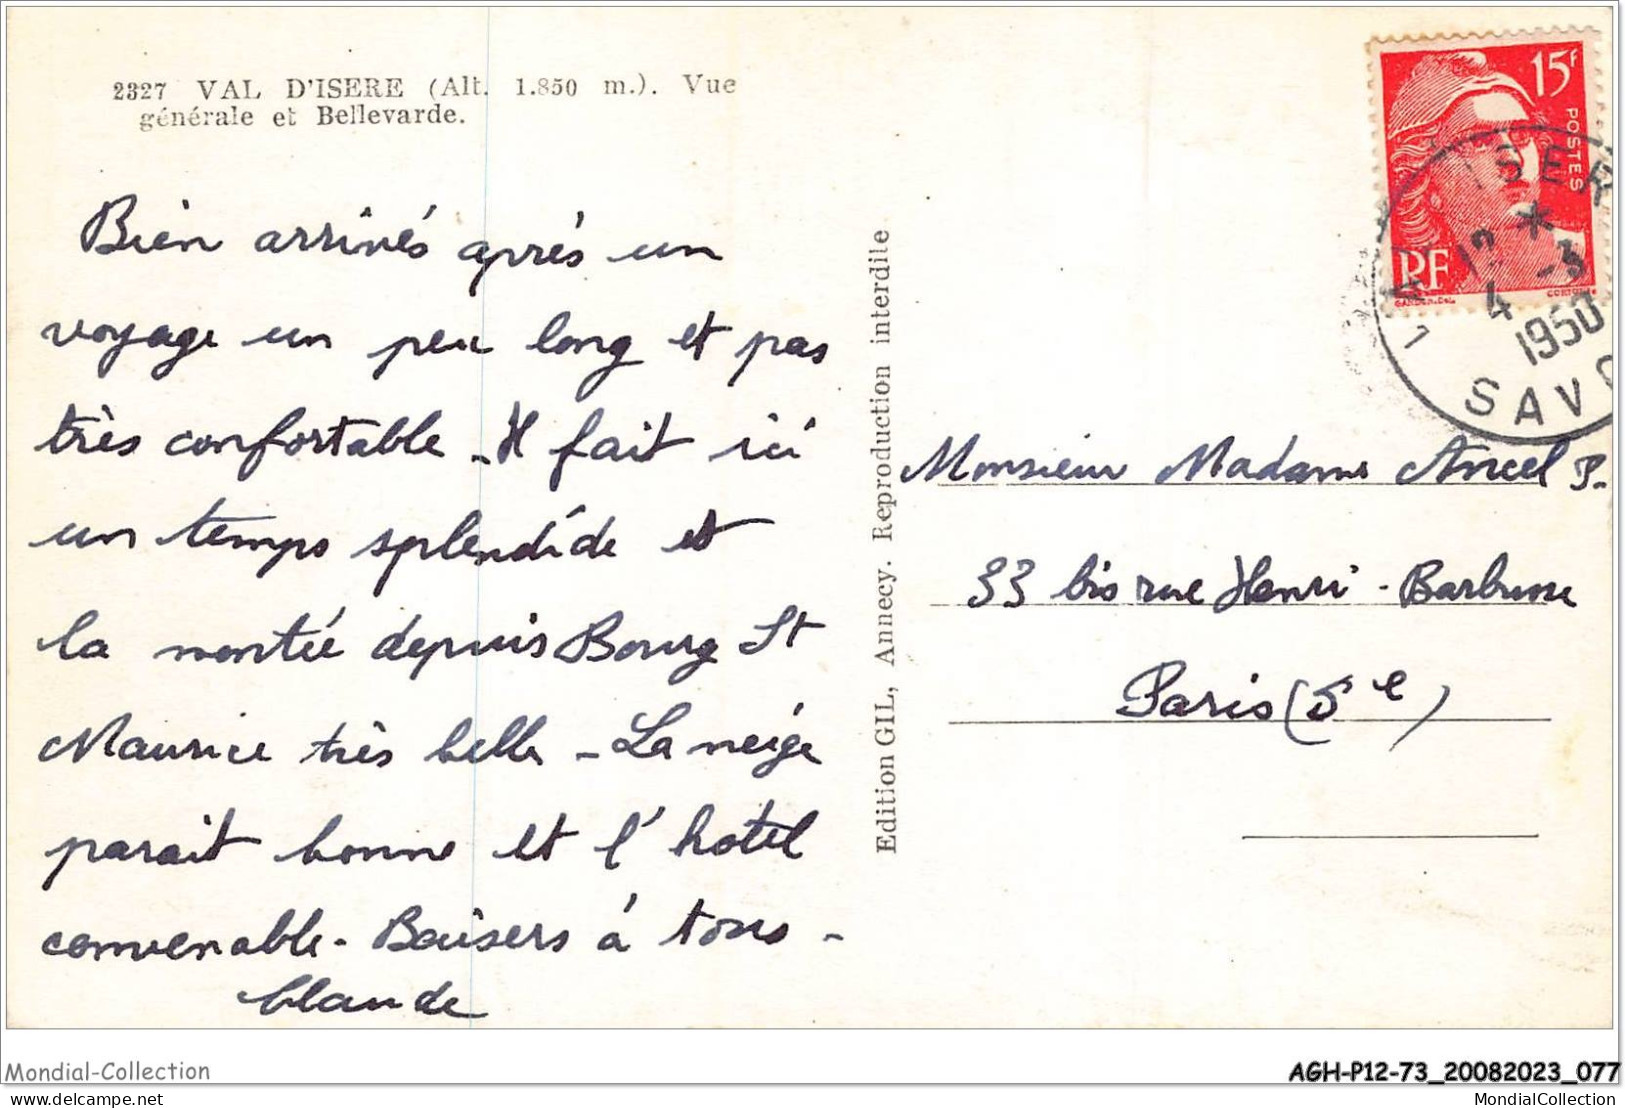 2327 VAL D'ISERE (Alt. 1.850 m.). Vue
générale et Bellevarde.
Bien arrivés après un
voyage un peu long et pas
très confortable - Il fait ici
un temps splendide et
la montée depuis Bourg St
Maurice très belle - La neige
parait bonne et l'hotel
convenable - Baisers à tous -
Claude
Edition GIL, Annecy. Reproduction interdite
15F
POSTES
RF
ISER
12 *
4 -3
1950
SAVO
Monsieur Madame Ancel P.
33 bis rue Henri - Barbusse
Paris (5e)
Mondial-Collection
AGH-P12-73_20082023_077
delcampe.net
MondialCollection